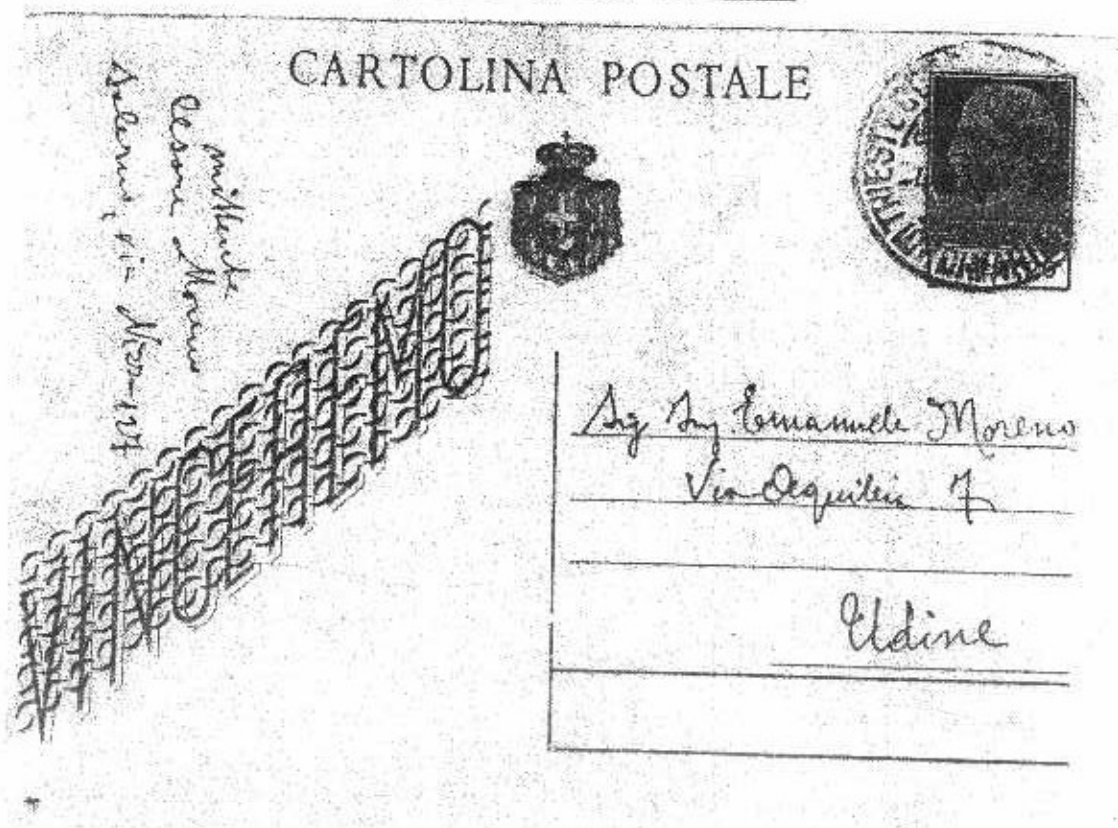 CARTOLINA POSTALE
mittente
Cesare Moreno
Salerno, via Nizza 127
VINCEREMO
TRIESTE
Sig Ing Emanuele Moreno
Via Aquileia 7
Udine